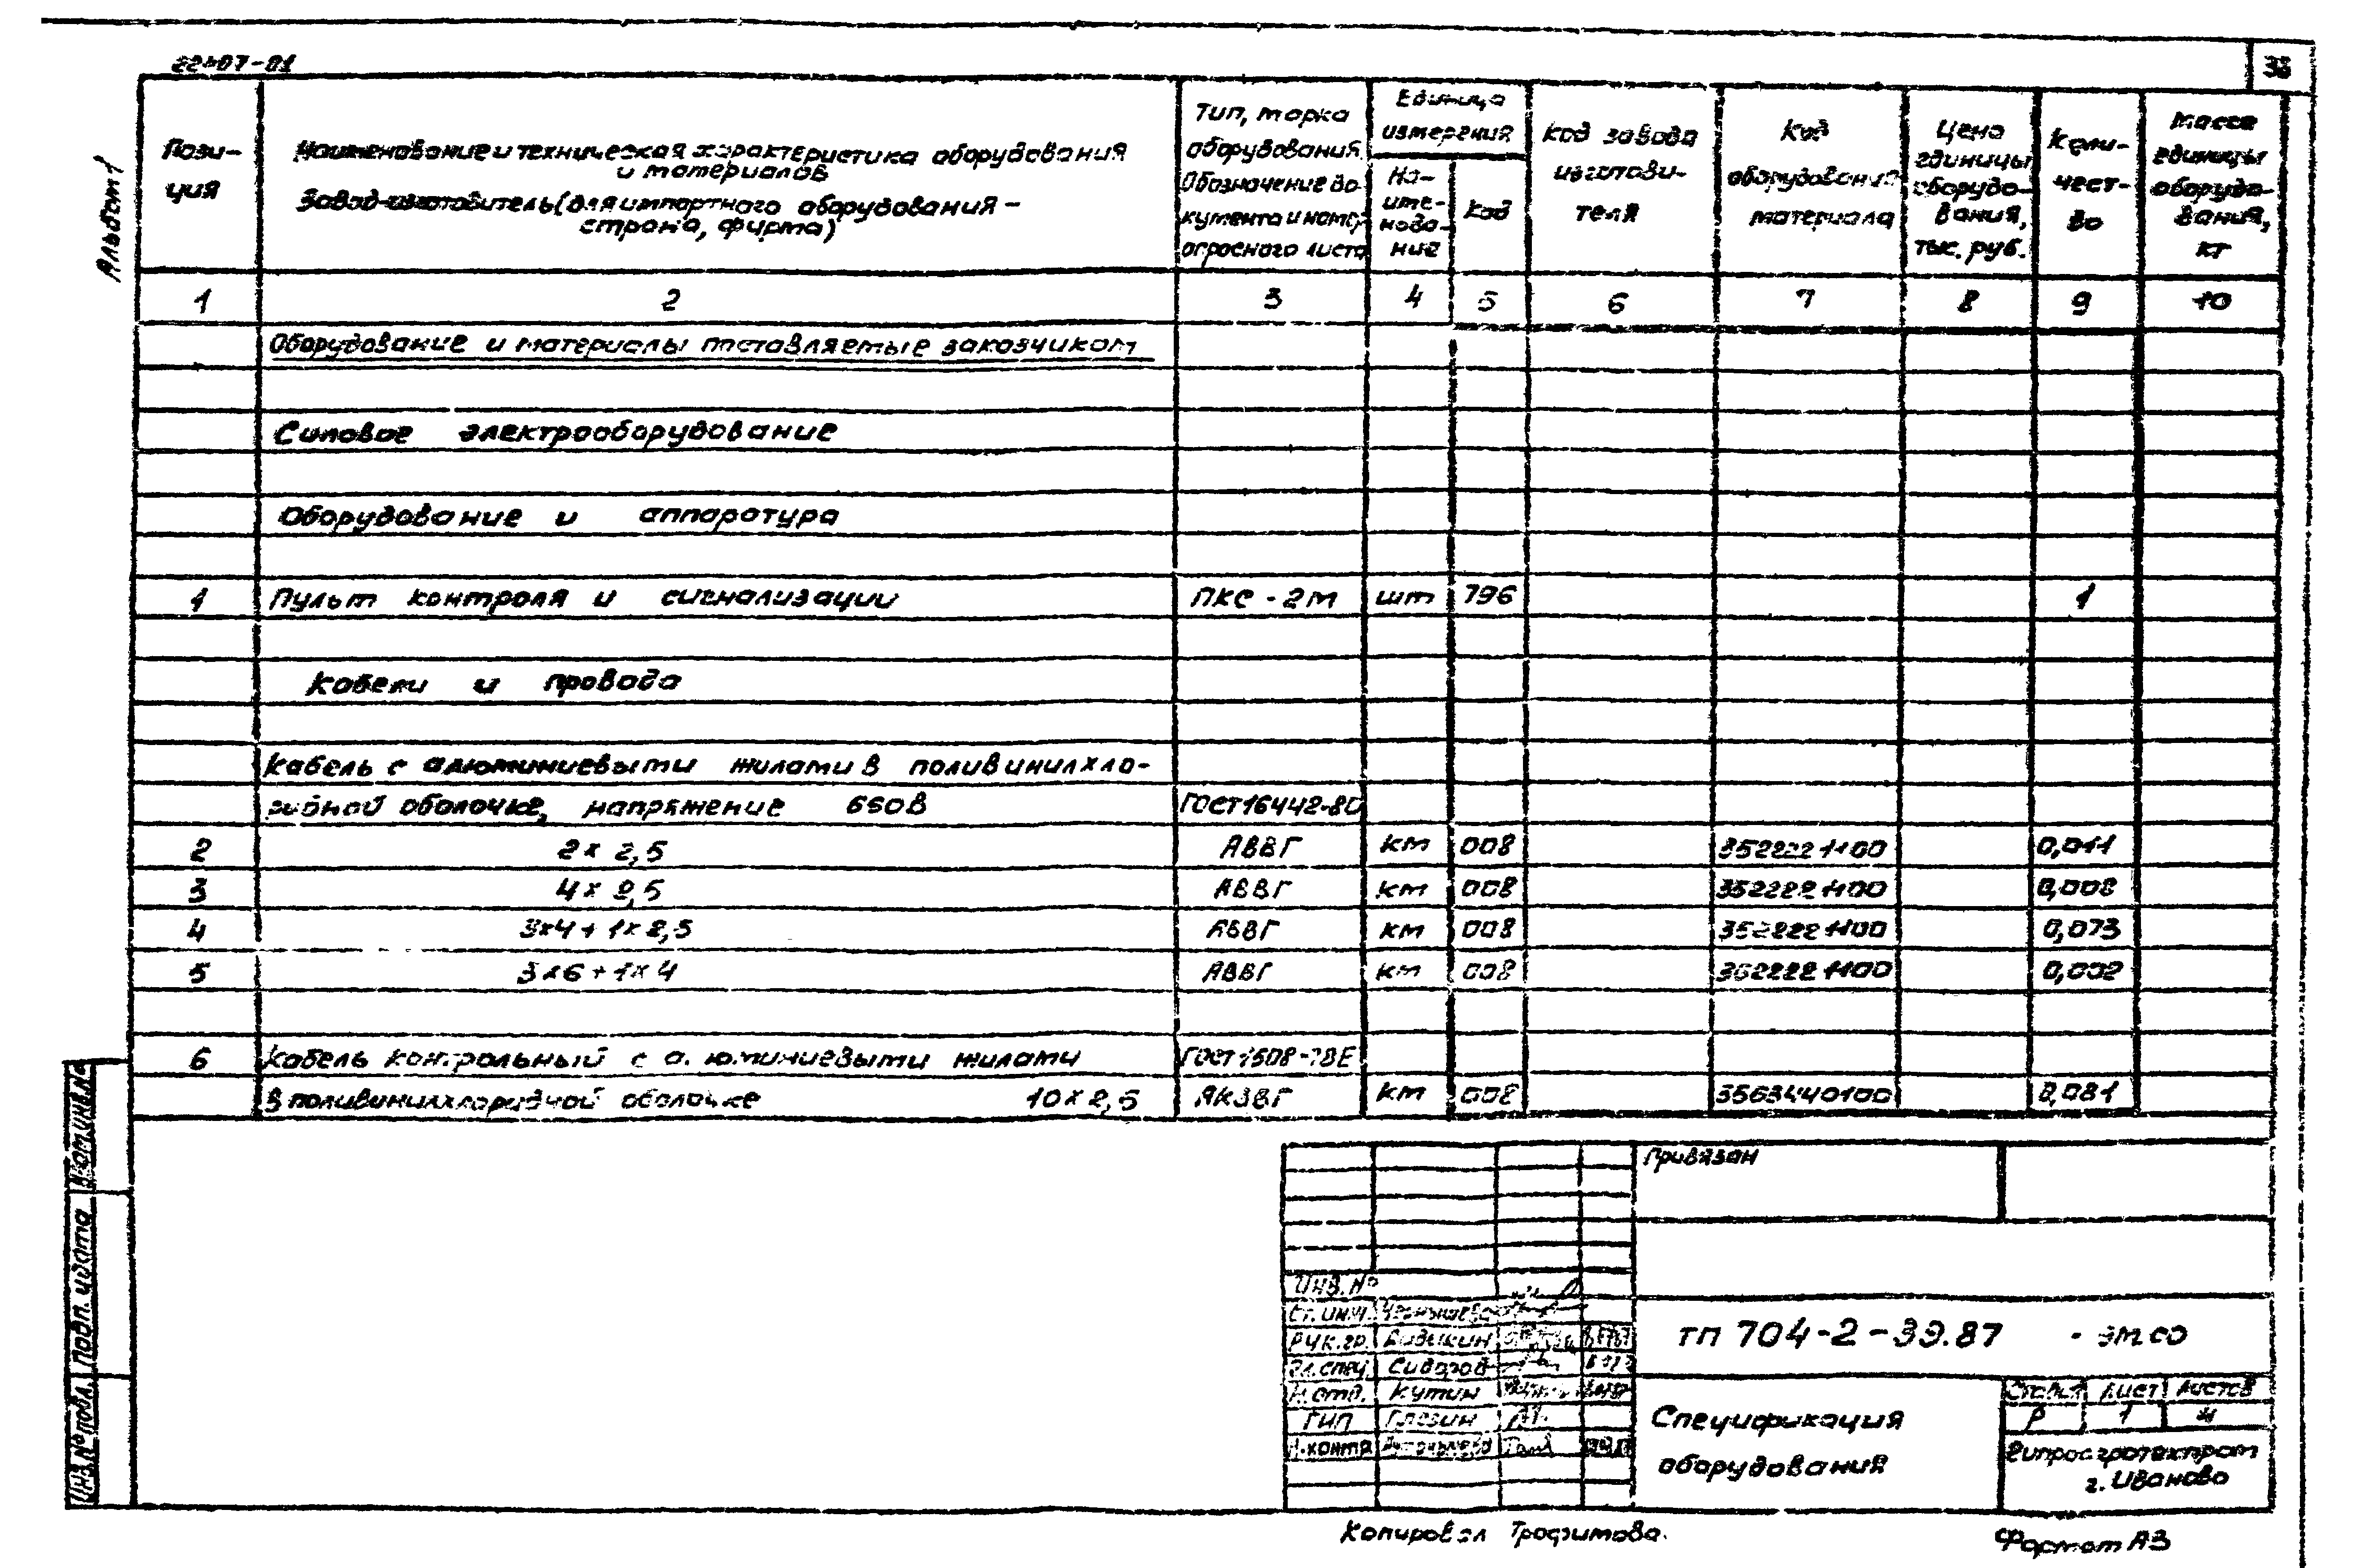 Альбом 1
Пози-
ция
Наименование и техническая характеристика оборудования
и материалов
Завод-изготовитель (для импортного оборудования -
страна, фирма)
Тип, марка
оборудования.
Обозначение до
кумента и номер
опросного листа
Единица
измерения
На-
име-
нова-
ние
Код
Код завода
изготови-
теля
Код
оборудования
материала
Цена
единицы
оборудо-
вания,
тыс. руб.
Коли-
чест-
во
Масса
единицы
оборудо-
вания,
кг
1 2 3 4 5 6 7 8 9 10
Оборудование и материалы поставляемые заказчиком
Силовое электрооборудование
Оборудование и аппаратура
1 Пульт контроля и сигнализации ПКС - 2М шт 796 1
Кабели и провода
Кабель с алюминиевыми жилами в поливинилхло-
ридной оболочке, напряжение 660В ГОСТ 16442-80
2 2 x 2,5 АВВГ км 008 3522221100 0,011
3 4 x 2,5 АВВГ км 008 3522221100 0,008
4 3x4 + 1x2,5 АВВГ км 008 3522221100 0,073
5 3x6 + 1x4 АВВГ км 008 3522221100 0,002
6 Кабель контрольный с алюминиевыми жилами ГОСТ 1508-78Е
в поливинилхлоридной оболочке 10 x 2,5 АКВВГ км 008 3563440100 0,081
Привязан
Инв. №
Ст. инж.
Рук. гр.
Гл. спец. Сидоров
Н. отд. Кутин
ГИП Глезин
Н. контр
тп 704-2-39.87 - ЭМ СО
Спецификация
оборудования
Стадия Лист Листов
Р 1 4
Гипросельхозпром
г. Иваново
Взам. инв. №
Подп. и дата
Инв. № подл.
Копировал Трофимова.
Формат А3